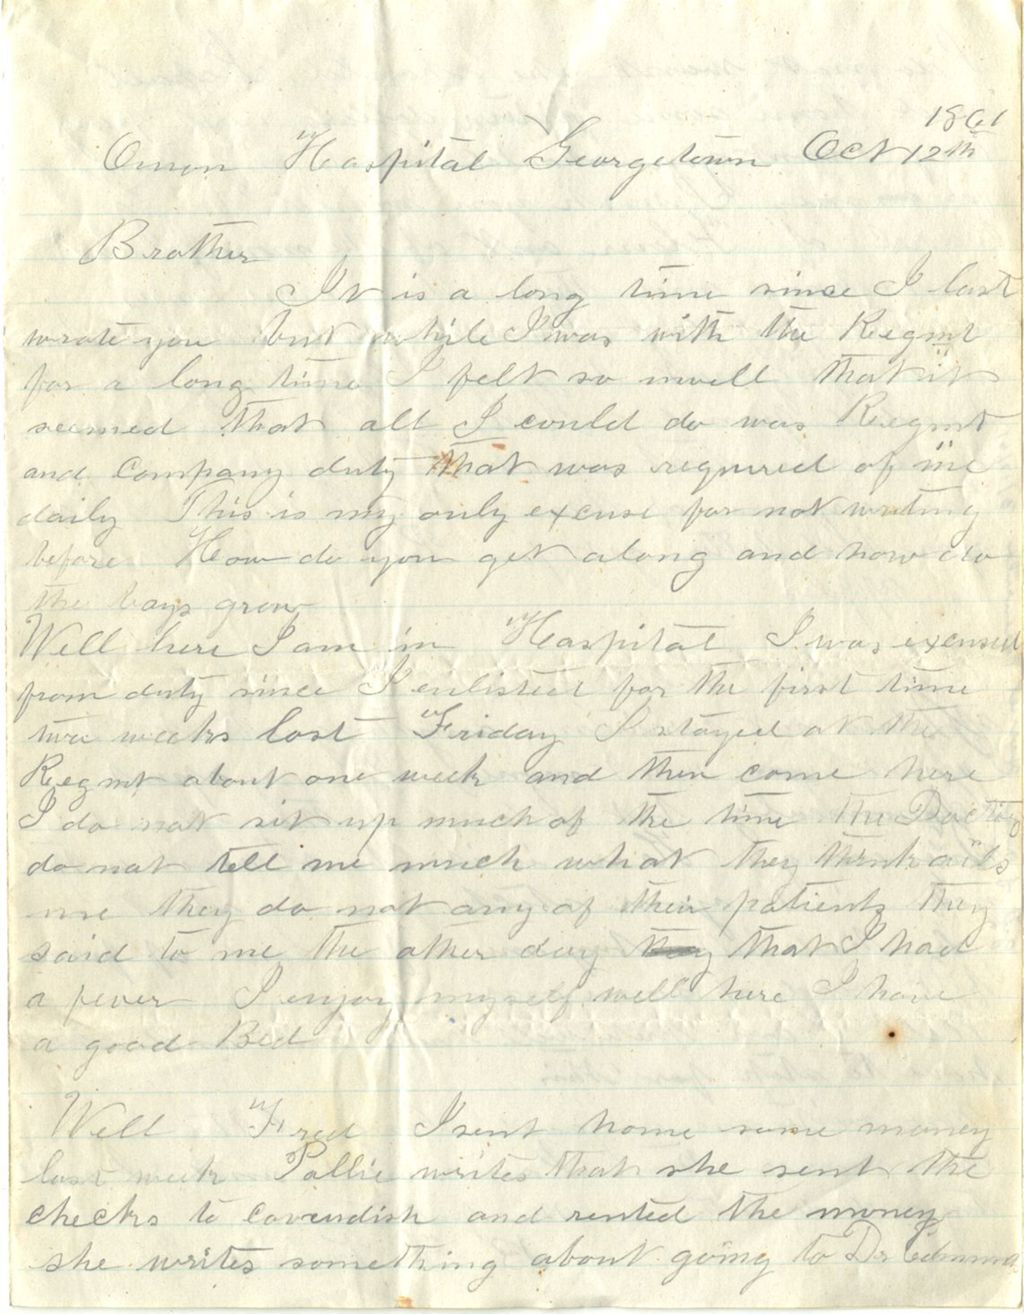 1861
Union Hospital Georgetown Oct 12th
Brother
It is a long time since I last
wrote you but while I was with the Regmt
for a long time I felt so unwell that it
seemed that all I could do was Regmt
and Company duty that was required of me
daily This is my only excuse for not writing
before How do you get along and how do
the boys grow
Well here I am in Hospital I was excused
from duty since I enlisted for the first time
two weeks last Friday I stayed at the
Regmt about one week and then come here
I do not sit up much of the time The Doctors
do not tell me much what they think ails
me they do not any of their patients they
said to me the other day that I had
a fever I enjoy myself well here I have
a good Bed
Well Fred I sent home some money
last week Pollie writes that she sent the
checks to Cavendish and rented the money
she writes something about going to Dr